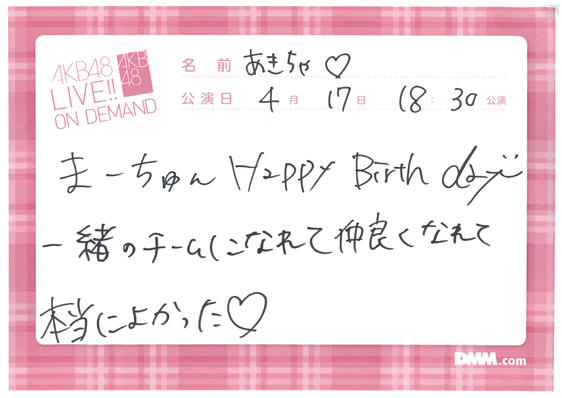 AKB48
LIVE!!
ON DEMAND
AKB
48
名前 あきちゃ♡
公演日 4月17日 18:30公演
まーちゅん Happy Birth day!!
一緒のチームになれて仲良くなれて
本当によかった♡
DMM.com